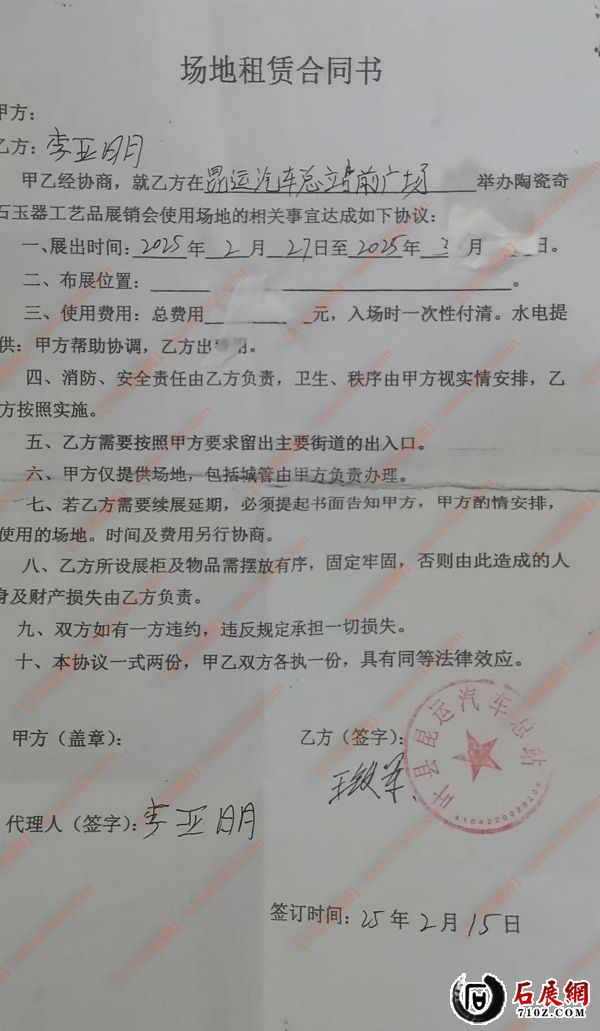 场地租赁合同书
甲方：
乙方：李亚明
甲乙经协商，就乙方在昆运汽车总站前广场 举办陶瓷奇
石玉器工艺品展销会使用场地的相关事宜达成如下协议：
一、展出时间：2025年2月27日至2025年3月 日。
二、布展位置： 。
三、使用费用：总费用 元，入场时一次性付清。水电提
供：甲方帮助协调，乙方出费用。
四、消防、安全责任由乙方负责，卫生、秩序由甲方视实情安排，乙
方按照实施。
五、乙方需要按照甲方要求留出主要街道的出入口。
六、甲方仅提供场地，包括城管由甲方负责办理。
七、若乙方需要续展延期，必须提起书面告知甲方，甲方酌情安排，
使用的场地。时间及费用另行协商。
八、乙方所设展柜及物品需摆放有序，固定牢固，否则由此造成的人
身及财产损失由乙方负责。
九、双方如有一方违约，违反规定承担一切损失。
十、本协议一式两份，甲乙双方各执一份，具有同等法律效应。
甲方（盖章）： 乙方（签字）：
叶县昆运汽车总站
4104220020206
代理人（签字）：李亚明
签订时间：25年2月15日
石展網
710Z.COM